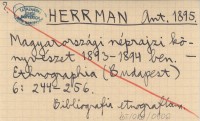 HERRMAN Ant. 1895.
Magyarországi néprajzi kö-
nyvészet 1893-1894 ben. -
Ethnographia (Budapest)
6: 244-256.
Bibliografia etnografica.